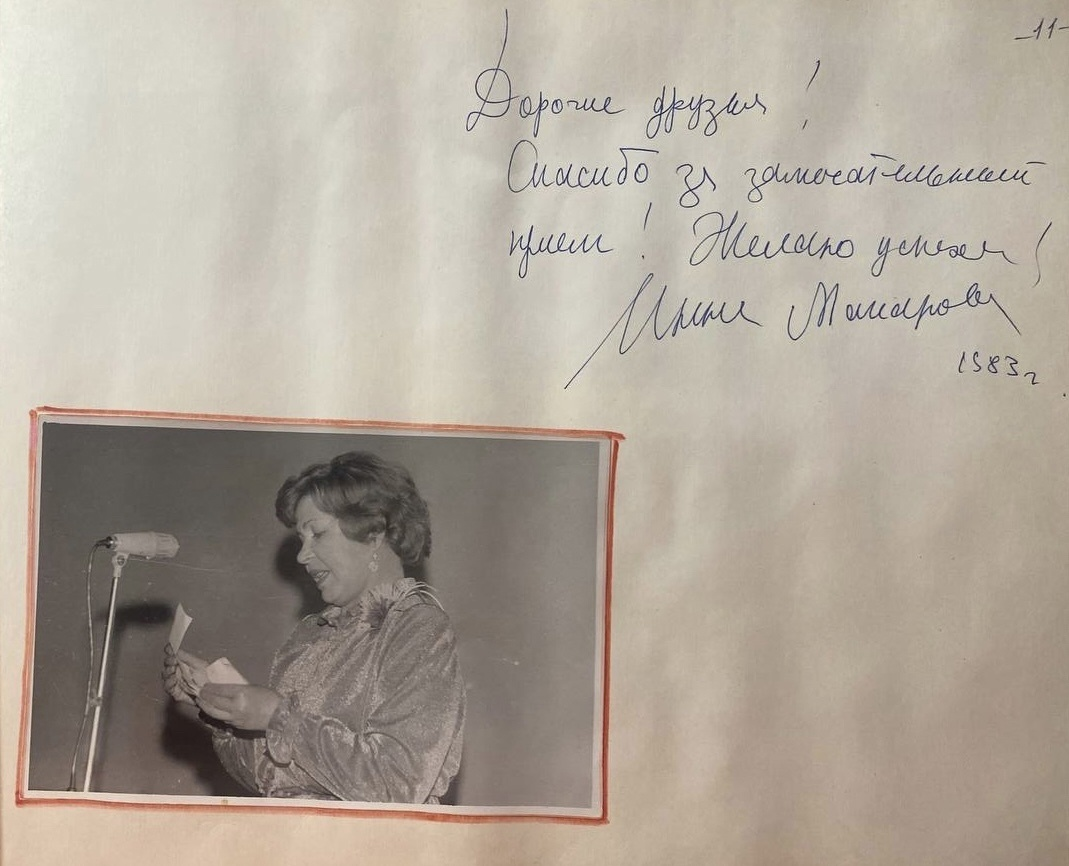 -11-
Дорогие друзья!
Спасибо за замечательный
прием! Желаю успехов!
Инна Макарова
1983г